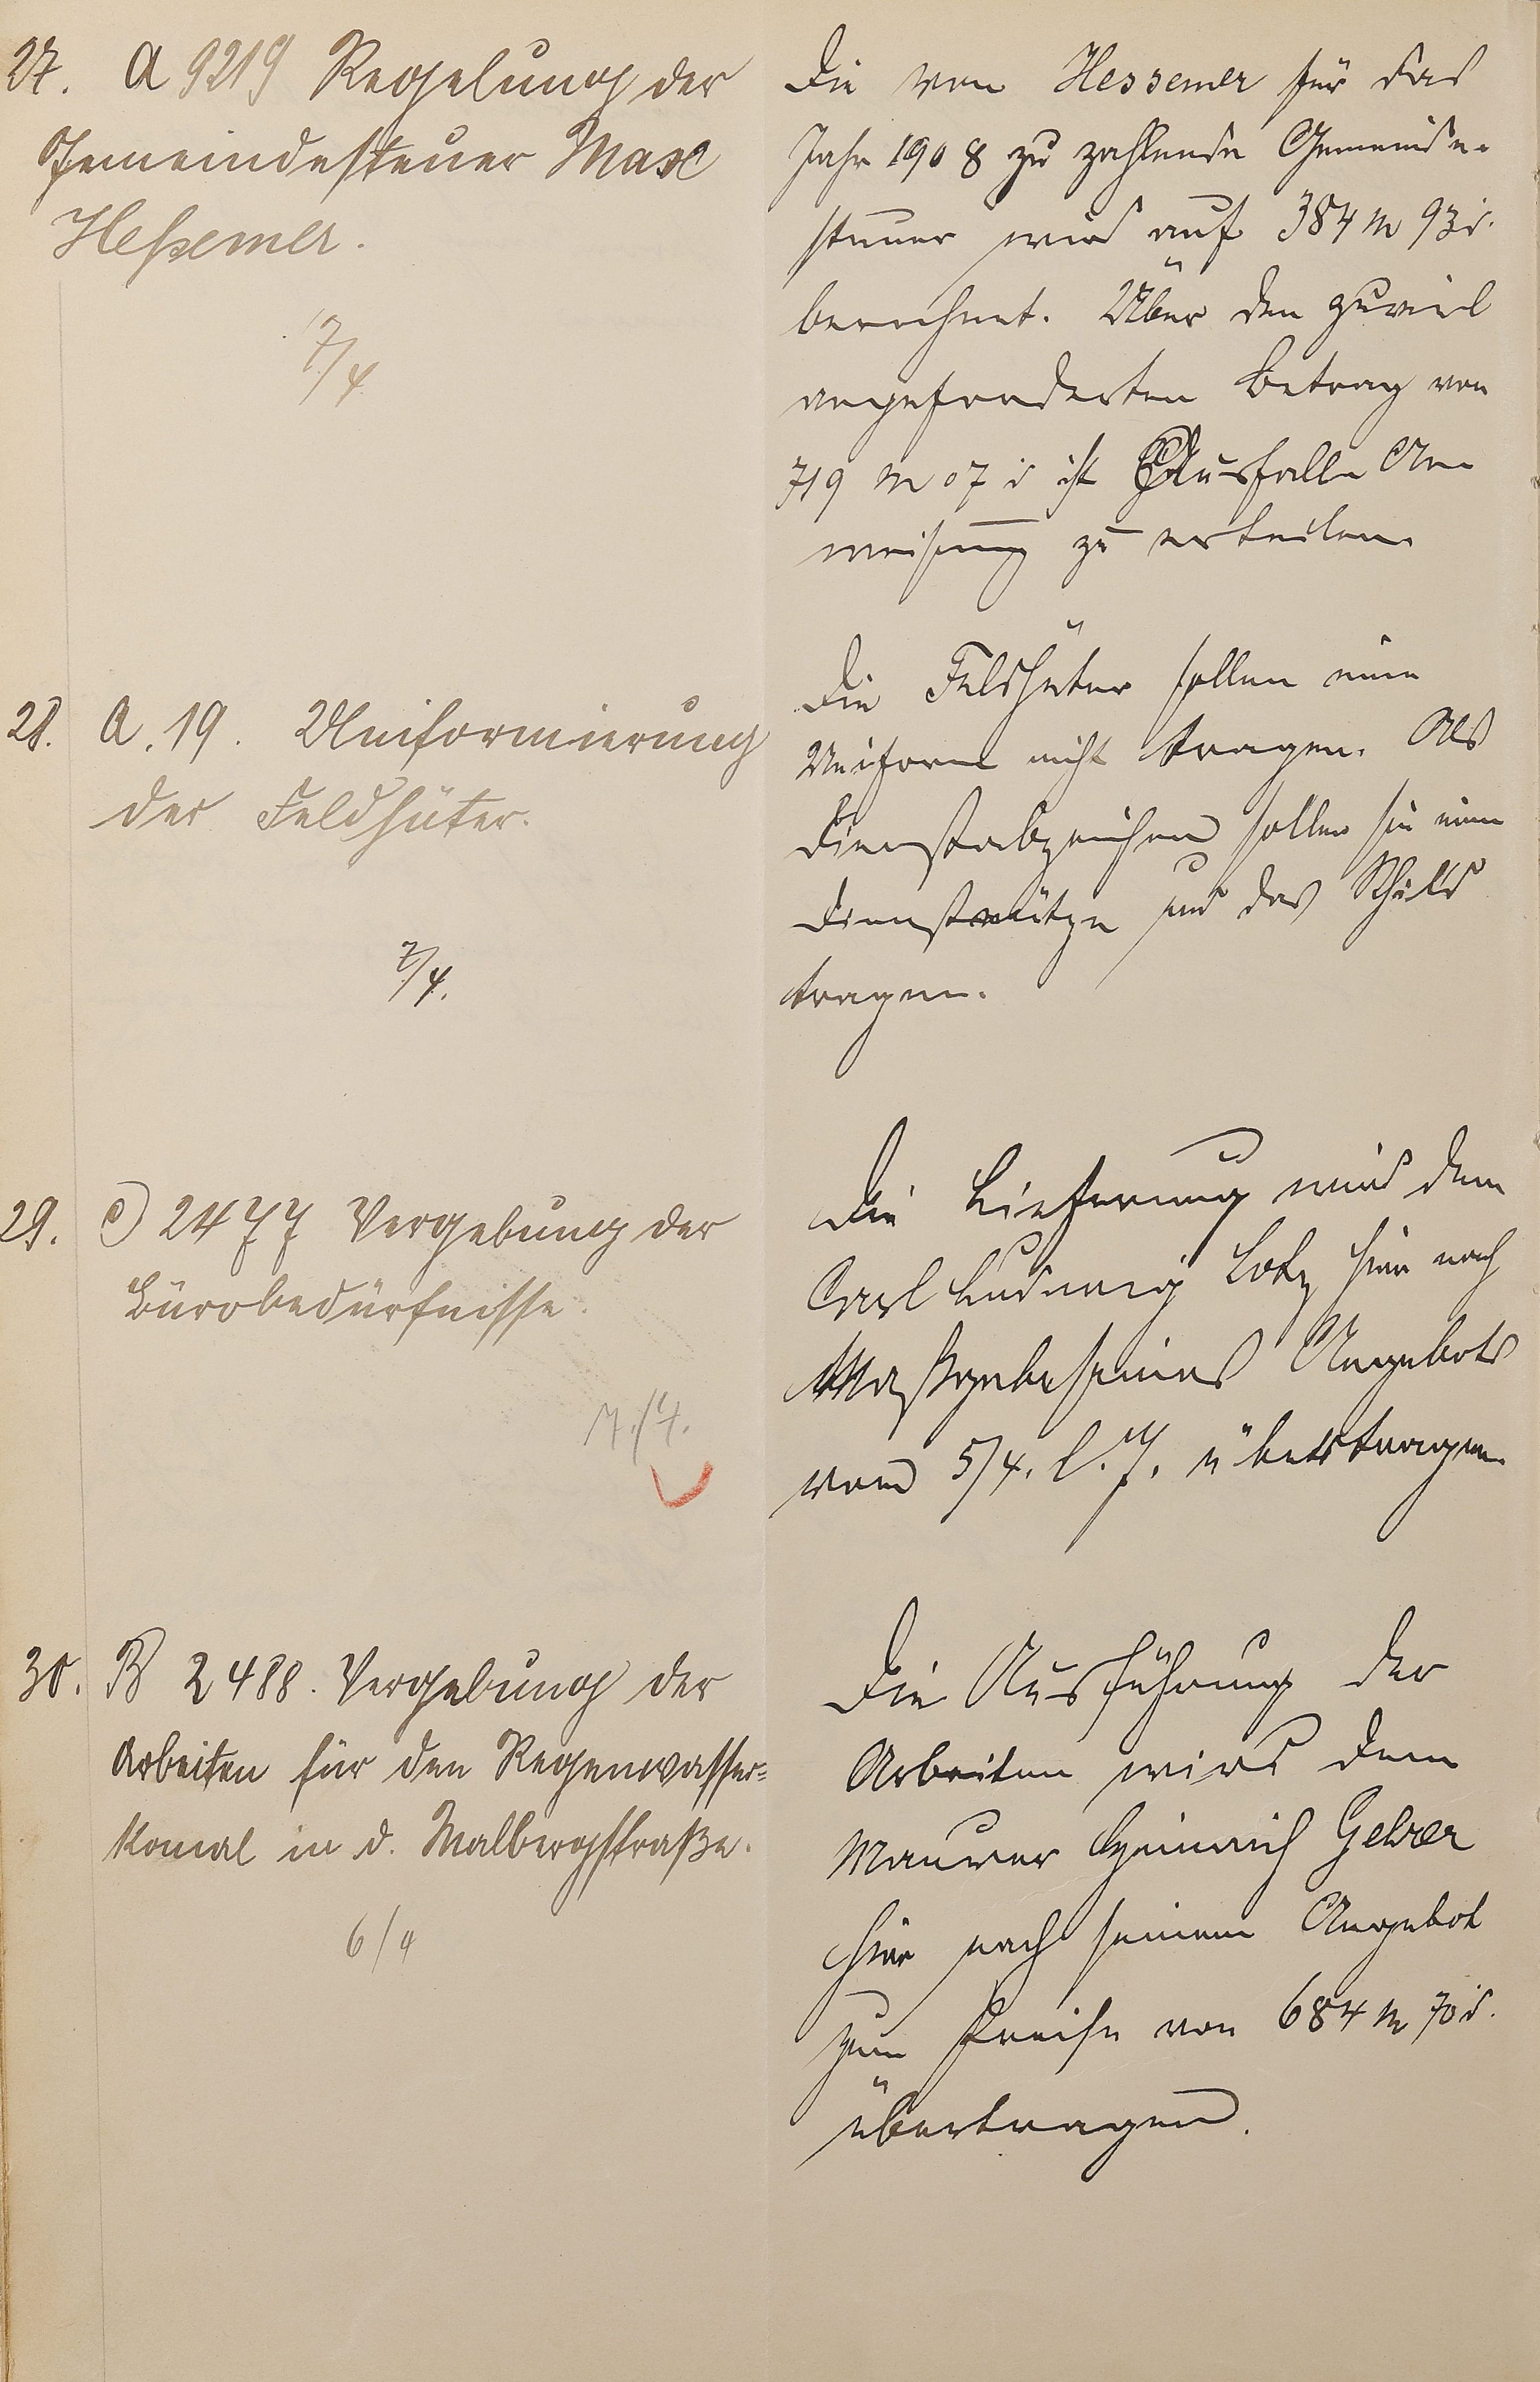 27. A 9219 Regelung der
Gemeindesteuer Max
Hessemer.
7/4
Die von Hessemer für das
Jahr 1908 zu zahlende Gemeinde-
steuer wird auf 384 M 93 d.
berechnet. Über den zuviel
angeforderten Betrag von
719 M 07 d ist Ausfalls An
weisung zu erteilen.
28. A. 19. Uniformierung
der Feldhüter.
7/4.
Die Feldhüter sollen eine
Uniform nicht tragen. Als
Dienstabzeichen sollen sie eine
Dienstmütze und das Schild
tragen.
29. C) 2477 Vergebung der
Bürobedürfnisse.
7./4.
Die Lieferung wird dem
Carl Ludwig Lotz hier nach
Maßgabe seines Angebots
vom 5/4. l. J. übertragen.
30. B 2488. Vergebung der
Arbeiten für den Regenwasser-
kanal in d. Malbergstraße.
6/4
Die Ausführung der
Arbeiten wird dem
Maurer Heinrich Gelzer
hier nach seinem Angebot
zum Preise von 684 M 70 d.
übertragen.